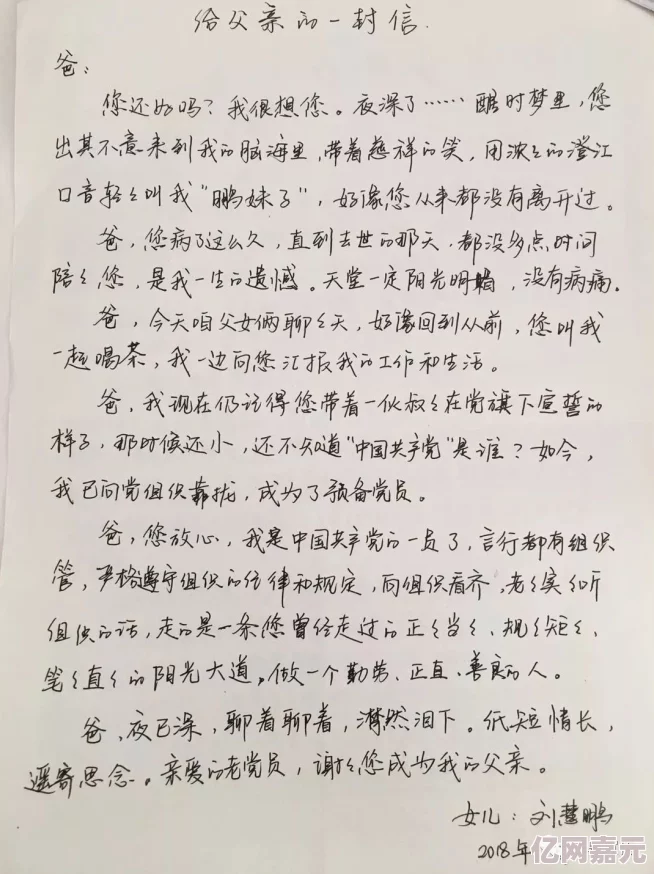 给父亲的一封信.
爸：
您还好吗？我很想您。夜深了……醒时梦里，您
出其不意来到我的脑海里，带着慈祥的笑，用浓々的澄江
口音轻々叫我“鹏妹子”，好像您从来都没有离开过。
爸，您病了这么久，直到去世的那天，都没多点时间
陪々您，是我一生的遗憾。天堂一定阳光明媚，没有病痛。
爸，今天咱父女俩聊々天，好像回到从前，您叫我
一起喝茶，我一边向您汇报我的工作和生活。
爸，我现在仍记得您带着一伙叔々在党旗下宣誓的
样子，那时候还小，还不知道“中国共产党”是谁？如今，
我已向党组织靠拢，成为了预备党员。
爸，您放心，我是中国共产党的一员了，言行都有组织
管，严格遵守组织的纪律和规定，向组织看齐，老々实々听
组织的话，走的是一条您曾经走过的正々当々、规々矩々、
笔々直々的阳光大道。做一个勤劳、正直、善良的人。
爸，夜已深，聊着聊着，潸然泪下。纸短情长，
遥寄思念。亲爱的老党员，谢々您成为我的父亲。
女儿：刘慧鹏
2018年
亿网嘉元